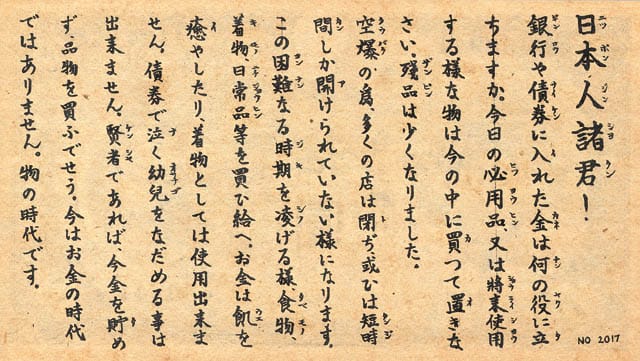 日本人諸君！
銀行や債券に入れた金は何の役に立
ちますか。今日の必用品又は將来使用
する様な物は今の中に買つて置きな
さい。殘品は少くなりました。
空爆の爲、多くの店は閉ぢ或ひは短時
間しか開けられていない様になります。
この困難なる時期を凌げる様、食物、
着物、日常品等を買ひ給へ。お金は飢を
癒やしたり、着物としては使用出来ま
せん。債券で泣く幼兒をなだめる事は
出来ません。賢者であれば、今金を貯め
ず、品物を買ふでせう。今はお金の時代
ではありません。物の時代です。
NO 2017